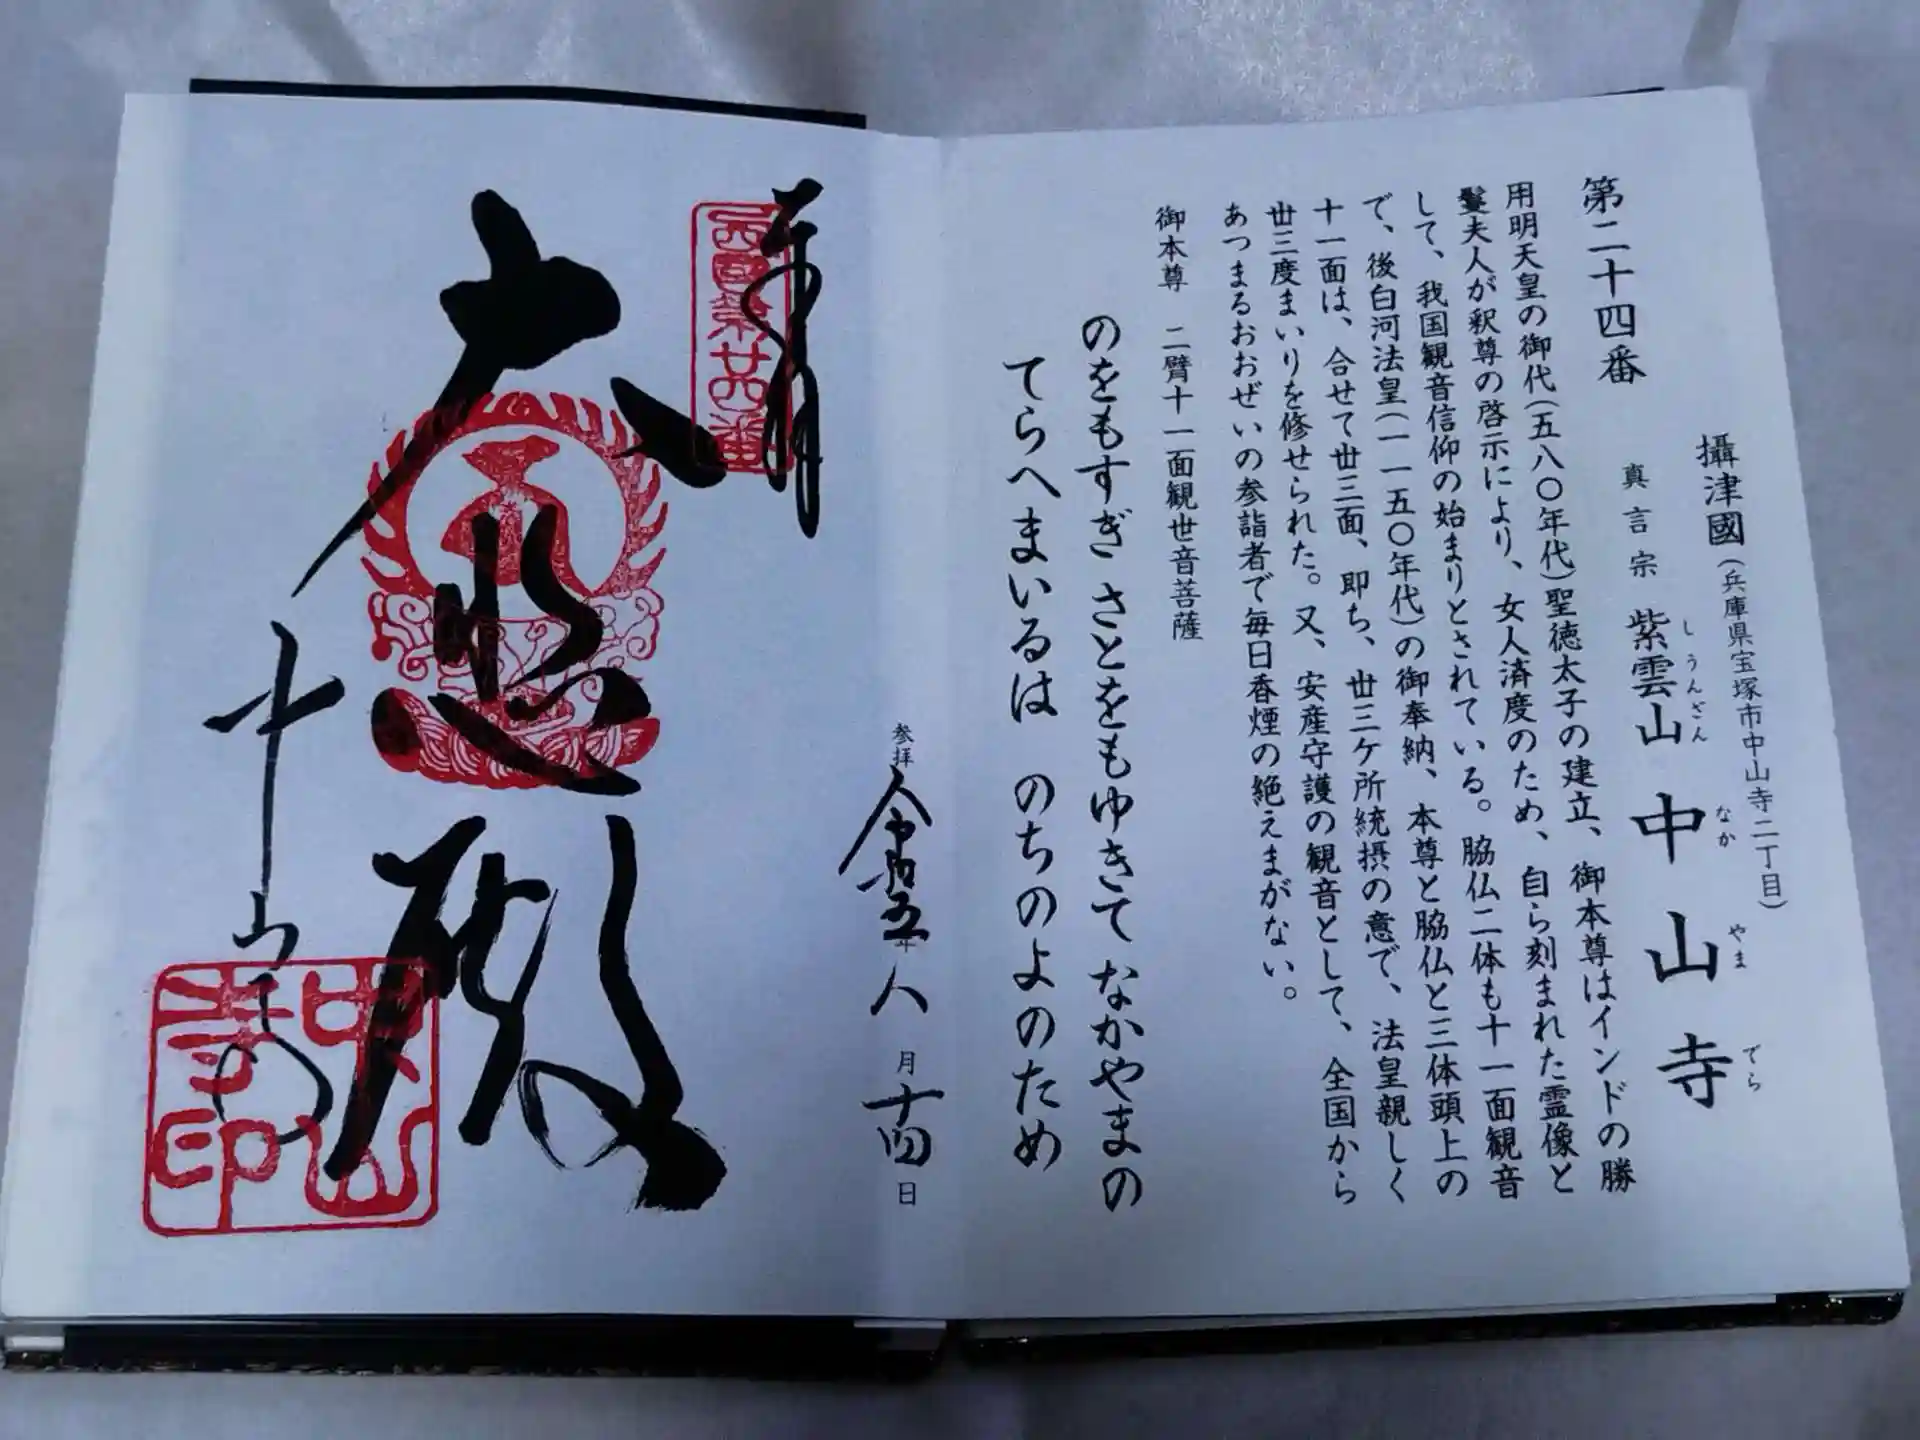 第二十四番
攝津國(兵庫県宝塚市中山寺二丁目)
真言宗 紫雲山 中山寺
しうんざん なかやまでら
用明天皇の御代(五八〇年代)聖徳太子の建立、御本尊はインドの勝
鬘夫人が釈尊の啓示により、女人済度のため、自ら刻まれた霊像と
して、我国観音信仰の始まりとされている。脇仏二体も十一面観音
で、後白河法皇(一一五〇年代)の御奉納、本尊と脇仏と三体頭上の
十一面は、合せて丗三面、即ち、丗三ケ所統摂の意で、法皇親しく
丗三度まいりを修せられた。又、安産守護の観音として、全国から
あつまるおおぜいの参詣者で毎日香煙の絶えまがない。
御本尊 二臂十一面観世音菩薩
のをもすぎ さとをもゆきて なかやまの
てらへまいるは のちのよのため
参拝 令和五年 八月十四日
西国第廿四番
大悲殿
中山寺
中山寺印